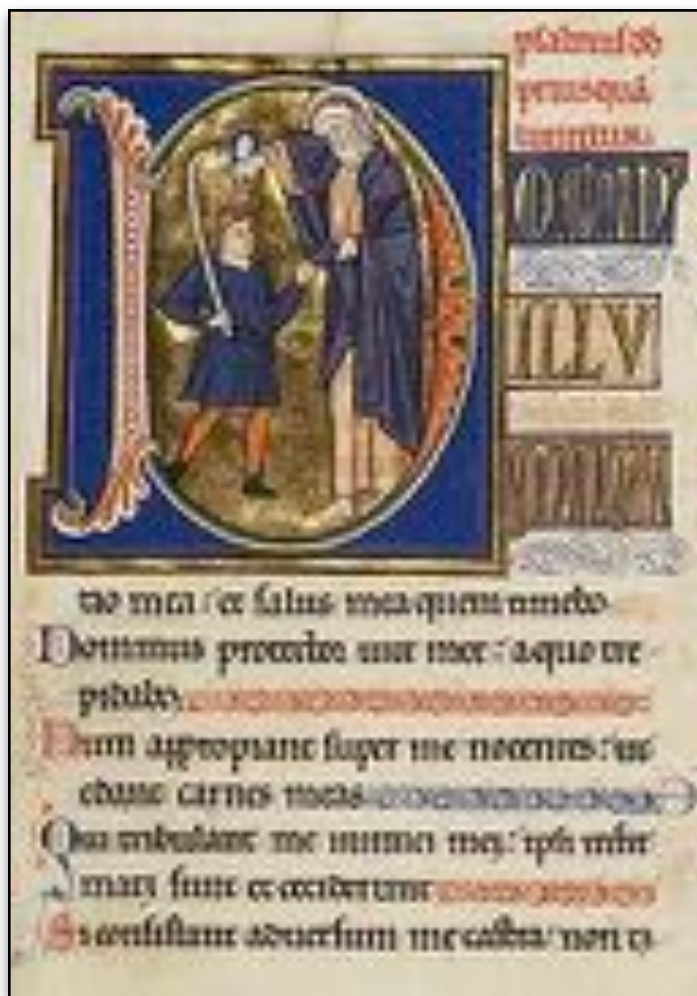 psalmus dd
priusquã
DOMIN9
ILLV
MINA
tio mea / et salus mea quem timebo.
Dominus protector uite mee : a quo tre
pidabo.
Dum appropiant super me nocentes : ut
edant carnes meas
Qui tribulant me inimici mei : ipsi infir
mati sunt et ceciderunt
Si consistant aduersum me castra / non ti